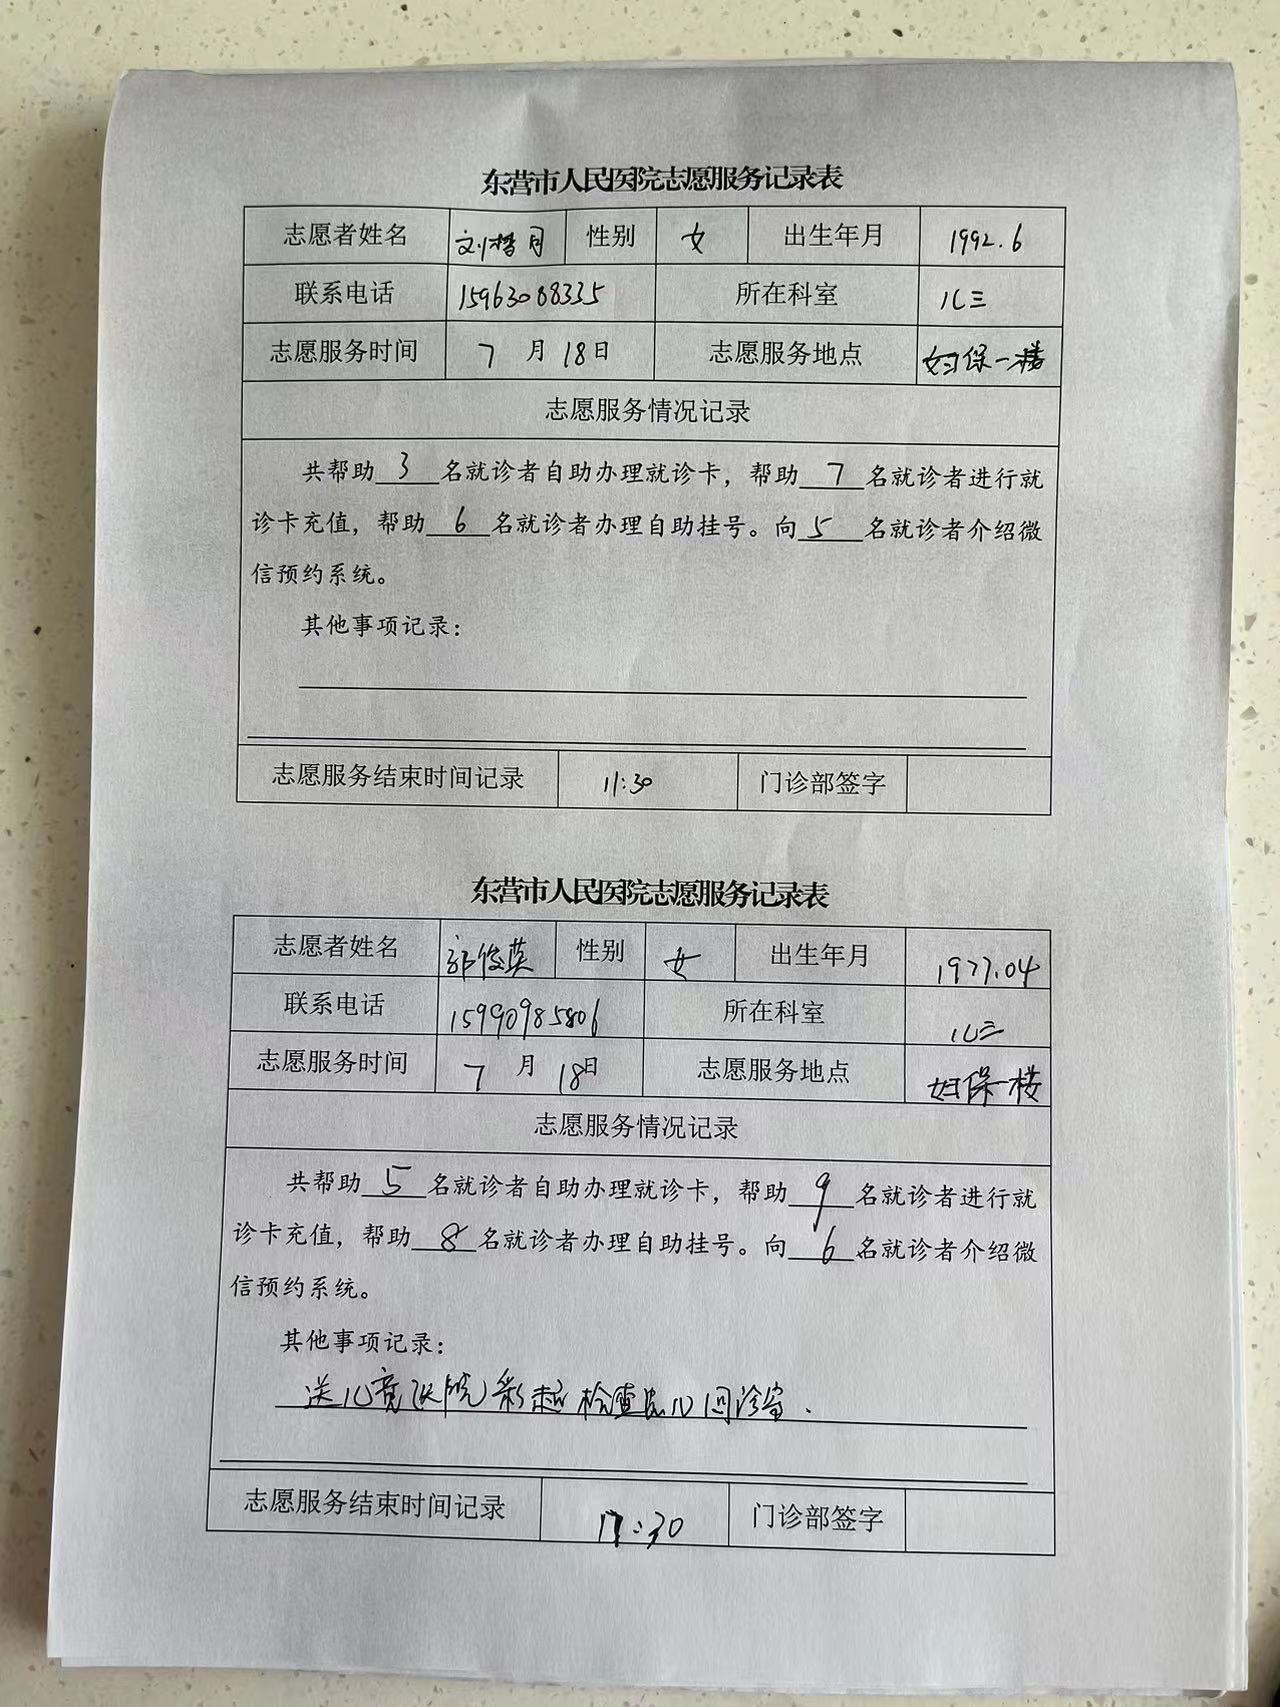 东营市人民医院志愿服务记录表
志愿者姓名 刘 月 性别 女 出生年月 1992.6
联系电话 15963088335 所在科室 儿三
志愿服务时间 7 月 18 日 志愿服务地点 妇保一楼
志愿服务情况记录
共帮助 3 名就诊者自助办理就诊卡，帮助 7 名就诊者进行就
诊卡充值，帮助 6 名就诊者办理自助挂号。向 5 名就诊者介绍微
信预约系统。
其他事项记录：
志愿服务结束时间记录 11:30 门诊部签字
东营市人民医院志愿服务记录表
志愿者姓名 郭俊英 性别 女 出生年月 1977.04
联系电话 15990985806 所在科室 儿三
志愿服务时间 7 月 18 日 志愿服务地点 妇保一楼
志愿服务情况记录
共帮助 5 名就诊者自助办理就诊卡，帮助 9 名就诊者进行就
诊卡充值，帮助 8 名就诊者办理自助挂号。向 6 名就诊者介绍微
信预约系统。
其他事项记录：
送儿童医院彩超检查患儿回诊室.
志愿服务结束时间记录 :30 门诊部签字